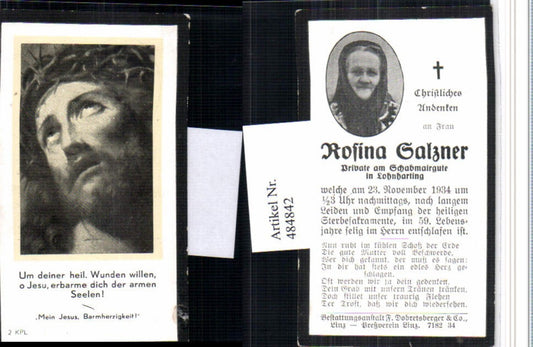 Um deiner heil. Wunden willen,
o Jesu, erbarme dich der armen
Seelen!
„Mein Jesus, Barmherzigkeit!"
2 KPL
Artikel Nr.
484842
Christliches
Andenken
an Frau
Rosina Salzner
Private am Schabmairgute
in Lohnharting
welche am 23. November 1934 um
½3 Uhr nachmittags, nach langem
Leiden und Empfang der heiligen
Sterbesakramente, im 59. Lebens-
jahre selig im Herrn entschlafen ist.
Nun ruht im kühlen Schoß der Erde
Die gute Mutter voll Beschwerde.
Wer dich gekannt, der muß es sagen:
In dir hat stets ein edles Herz ge-
schlagen.
Oft werden wir ja dein gedenken,
Dein Grab mit unsern Tränen tränken,
Doch stillet unser traurig Flehen
Der Trost, daß wir dich wiedersehen.
Bestattungsanstalt F. Dobretsberger & Co.,
Linz — Preßverein Linz. 7182 34